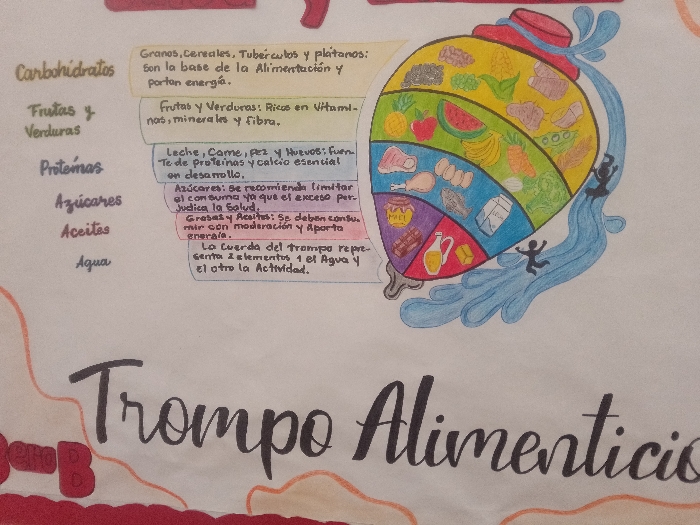 Carbohidratos
Granos, Cereales, Tubérculos y plátanos:
son la base de la Alimentación y
portan energía.
Frutas y
Verduras
Frutas y Verduras: Ricas en Vitami-
nas, minerales y fibra.
Proteínas
Leche, Carne, pez y Huevos: Fuen-
te de proteínas y calcio esencial
en desarrollo.
Azúcares
Azúcares: Se recomienda limitar
el consumo ya que el exceso per-
Judica la Salud.
Aceites
Grasas y Aceites: Se deben consu-
mir con moderación y Aporta
energía.
Agua
La Cuerda del trompo repre-
senta 2 elementos 1 el Agua y
el otro la Actividad.
MIEL
Trompo Alimenticio
B